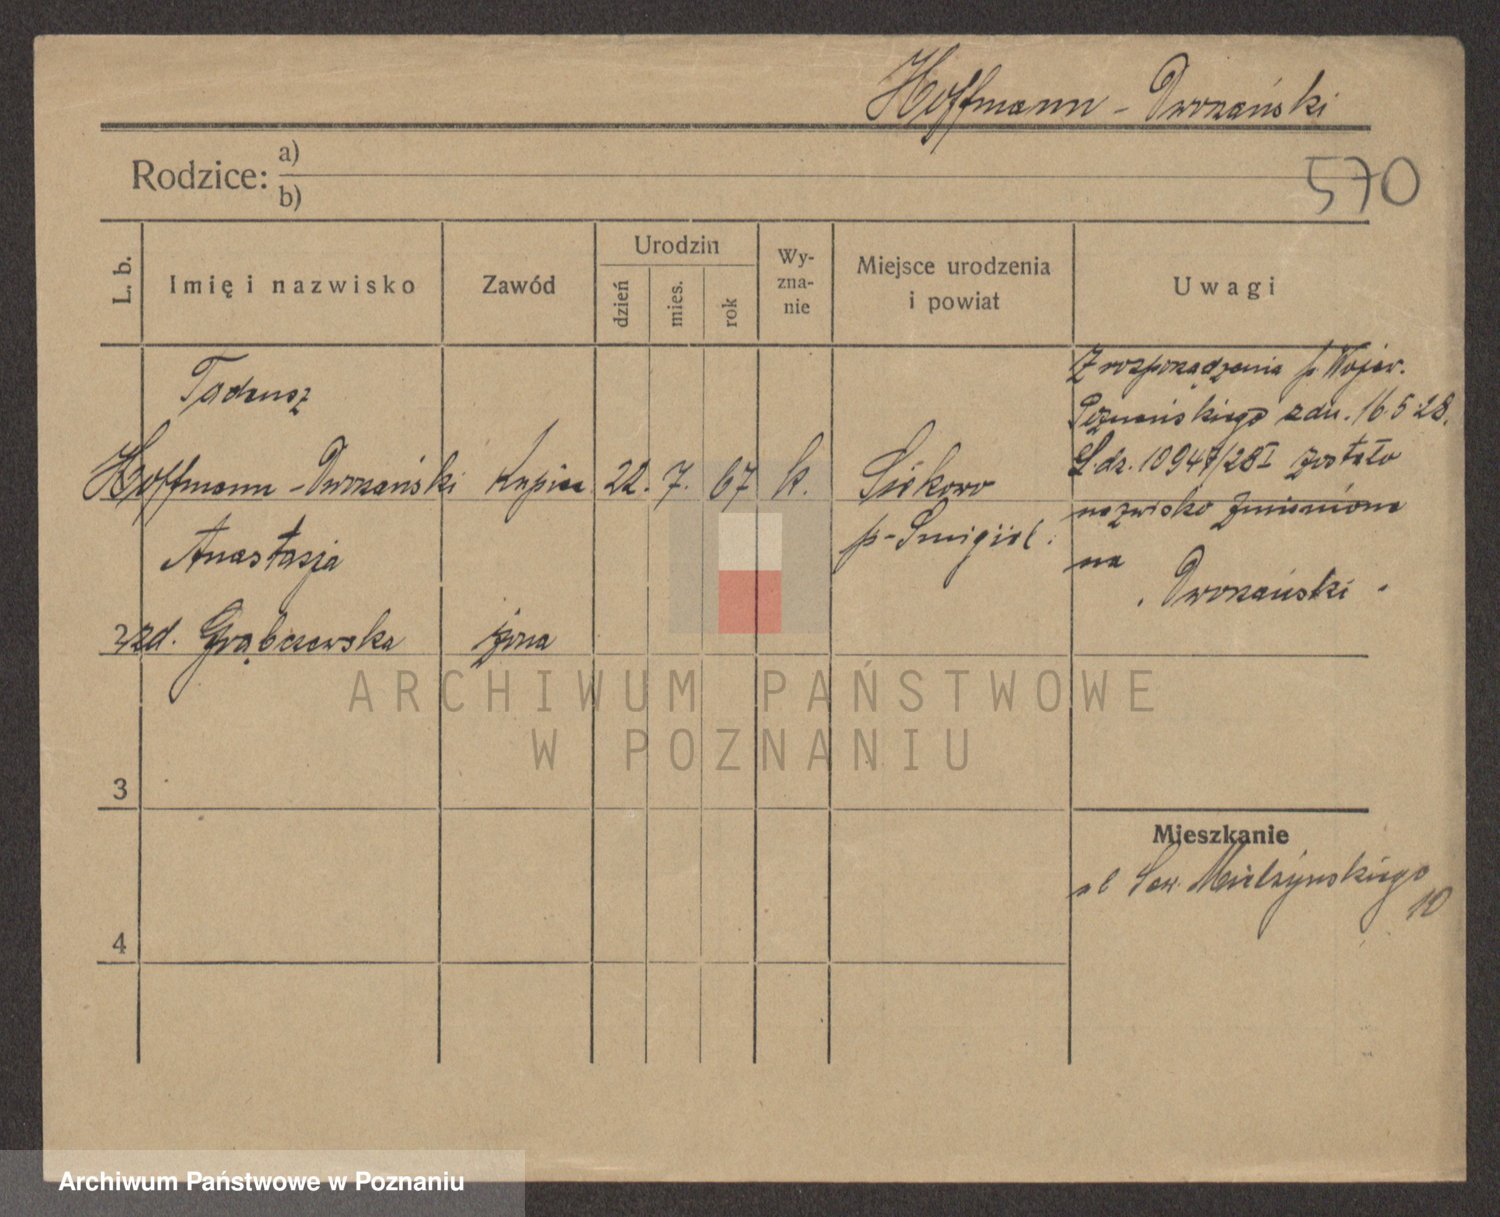 Hoffmann - Dworzański
Rodzice: a)
b)
570
L. b.
Imię i nazwisko
Zawód
Urodzin
dzień
mies.
rok
Wy-
zna-
nie
Miejsce urodzenia
i powiat
Uwagi
Tadeusz
Hoffmann - Dworzański kupiec 22. 7. 67 k.
p-Śmigiel.
Anastazja
2 zd. Grąbczewska żona
Z rozporządzenia p Wojew.
Poznańskiego z dn. 16 5 28.
L.dz. 10947/28 I zostało
nazwisko zmienione
na
Dworzański.
3
4
Mieszkanie
ul Sew. Mielżyńskiego
10
ARCHIWUM PAŃSTWOWE
W POZNANIU
Archiwum Państwowe w Poznaniu